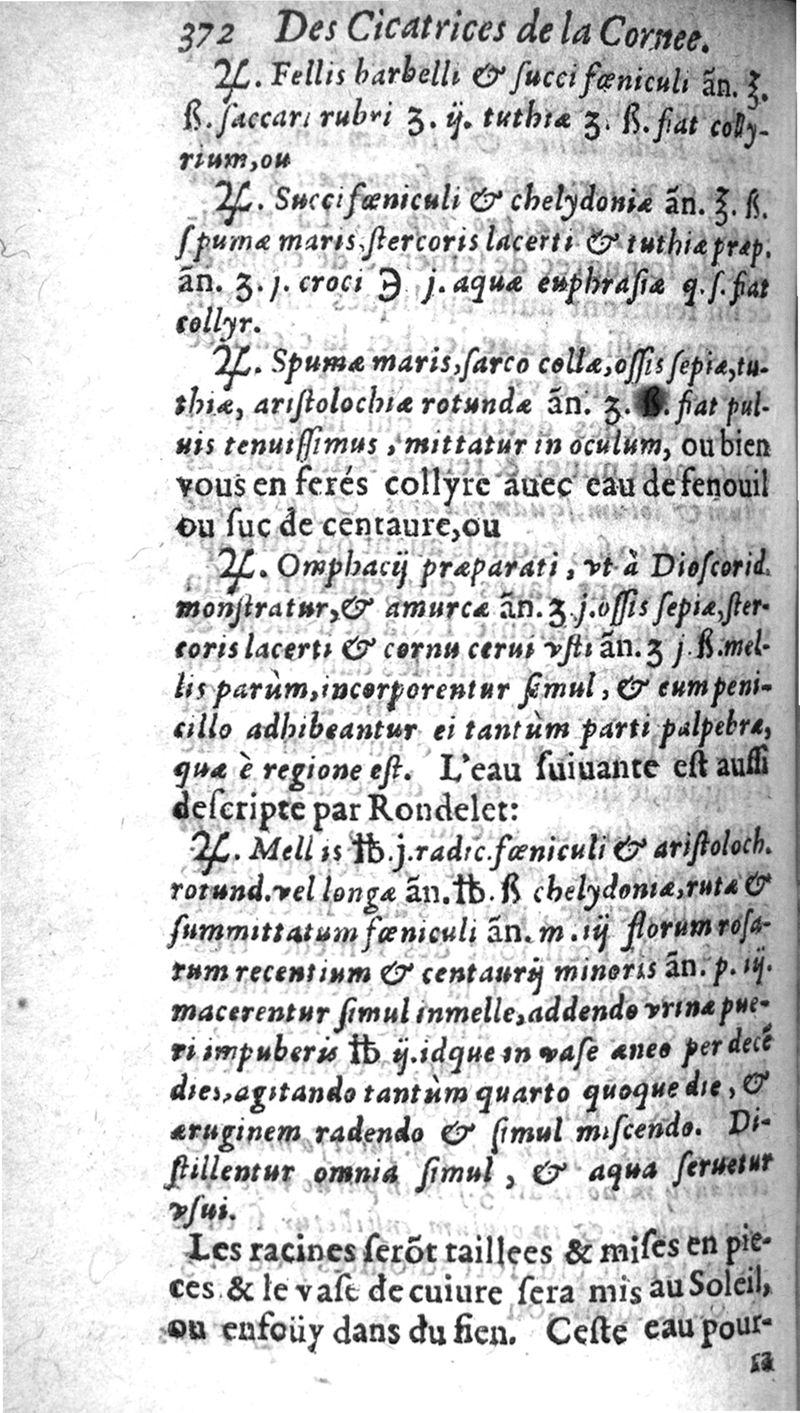 372 Des Cicatrices de la Cornee.
℞. Fellis barbelli & ſucci fœniculi ãn. ʒ.
ß. ſaccari rubri ʒ. ij. tuthiæ ʒ. ß. fiat colly-
rium, ou
℞. Succi fœniculi & chelydoniæ ãn. ʒ. ß.
ſpumæ maris, ſtercoris lacerti & tuthiæ præp.
ãn. ʒ. j. croci ℈ j. aquæ euphraſiæ q. ſ. fiat
collyr.
℞. Spumæ maris, ſarco collæ, oſſis ſepiæ, tu-
thiæ, ariſtolochiæ rotundæ ãn. ʒ. ß. fiat pul-
uis tenuiſſimus, mittatur in oculum, ou bien
vous en ferés collyre auec eau de fenouil
ou ſuc de centaure, ou
℞. Omphacij præparati, vt à Dioſcorid.
monſtratur, & amurcæ ãn. ʒ. j. oſſis ſepiæ, ſter-
coris lacerti & cornu cerui vſti ãn. ʒ j. ß. mel-
lis parùm, incorporentur ſimul, & cum peni-
cillo adhibeantur ei tantùm parti palpebræ,
quæ è regione eſt. L'eau ſuiuante eſt auſſi
deſcripte par Rondelet:
℞. Mellis ℔. j. radic. fœniculi & ariſtoloch.
rotund. vel longæ ãn. ℔. ß chelydoniæ, rutæ &
ſummittatum fœniculi ãn. m. iij florum roſa-
rum recentium & centaurij minoris ãn. p. iij.
macerentur ſimul in melle, addendo vrinæ pue-
ri impuberis ℔ ij. idque in vaſe æneo per decẽ
dies, agitando tantùm quarto quoque die, &
æruginem radendo & ſimul miſcendo. Di-
ſtillentur omnia ſimul, & aqua ſeruetur
vſui.
Les racines ſerõt taillees & miſes en pie-
ces & le vaſe de cuiure ſera mis au Soleil,
ou enfoüy dans du fien. Ceſte eau pour-
ra